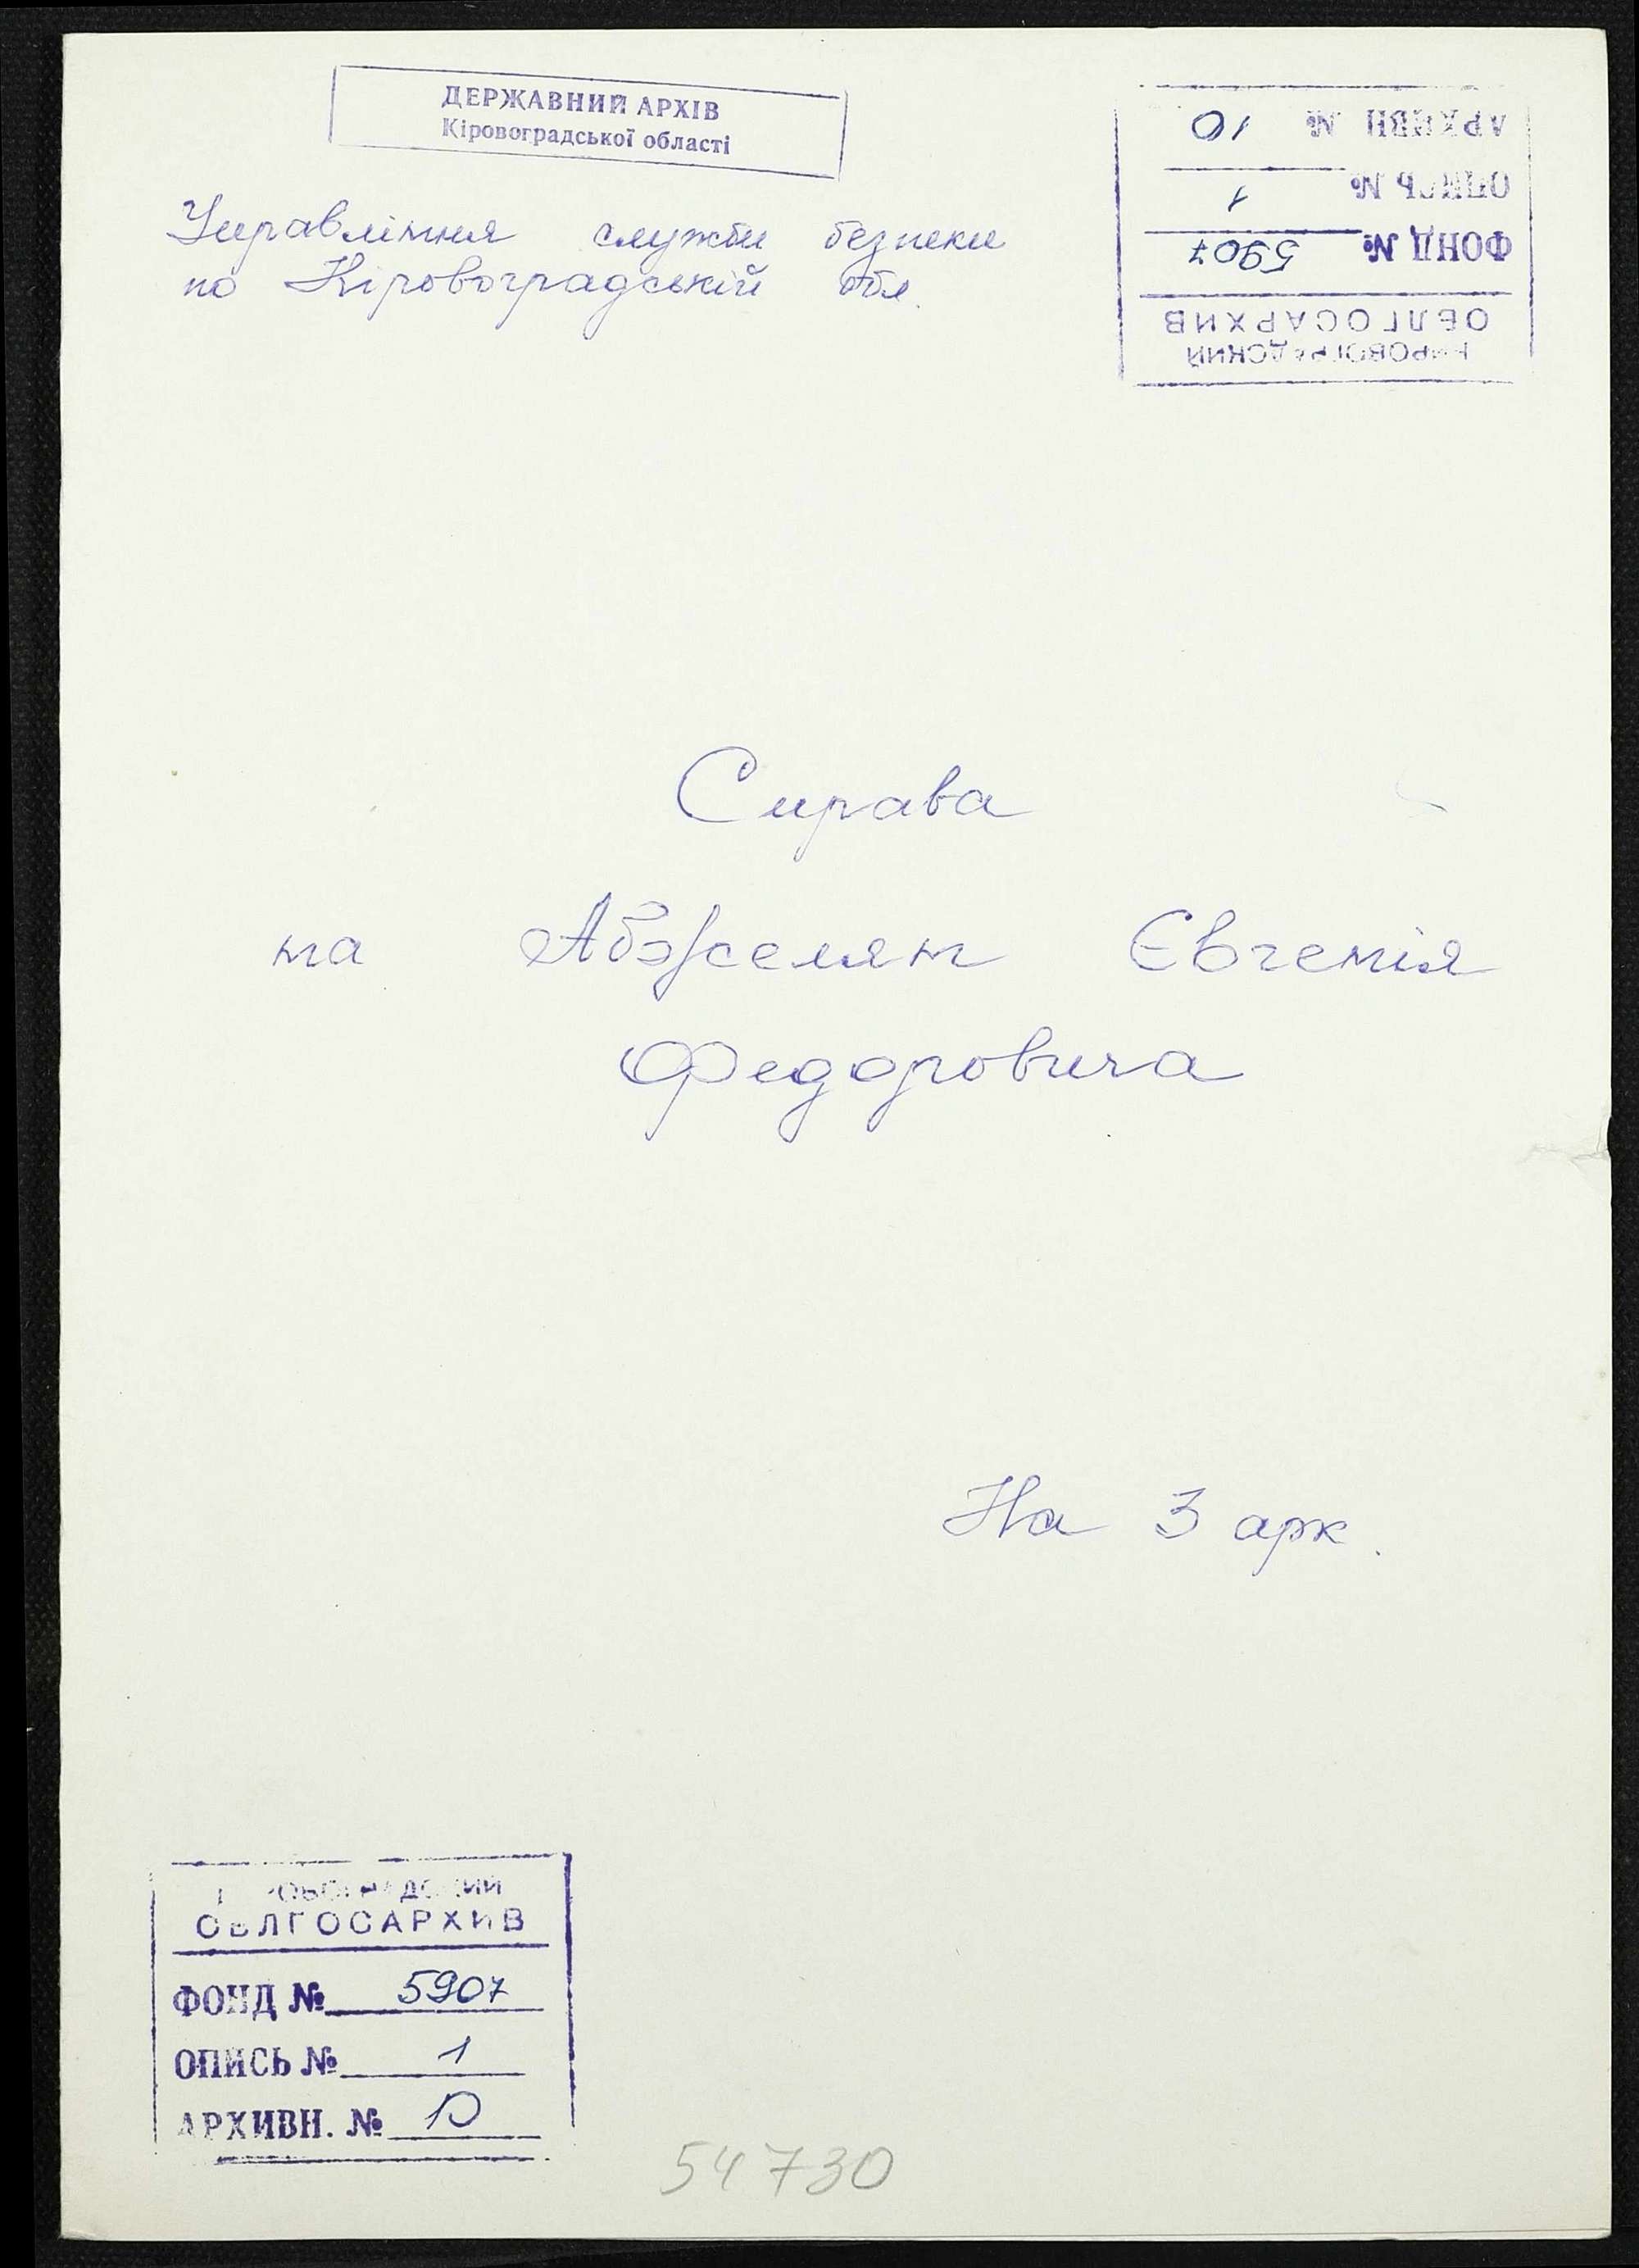 ДЕРЖАВНИЙ АРХІВ
Кіровоградської області
АРХИВН № 10
ОПИСЬ № 1
ФОНД № 5907
ОБЛГОСАРХИВ
КИРОВОГРАДСКИЙ
Управління служби безпеки
по Кіровоградській обл.
Справа
на Абджелян Євгенія
Федоровича
На 3 арк.
КИРОВОГРАДСКИЙ
ОБЛГОСАРХИВ
ФОНД № 5907
ОПИСЬ № 1
АРХИВН. № 10
54730